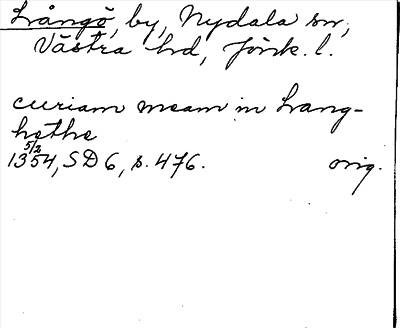 Långö, by, Nydala sn,
Västra hd, Jönk. l.
curiam meam in Lang-
høthe
5/2
1354, SD 6, s. 476. orig.